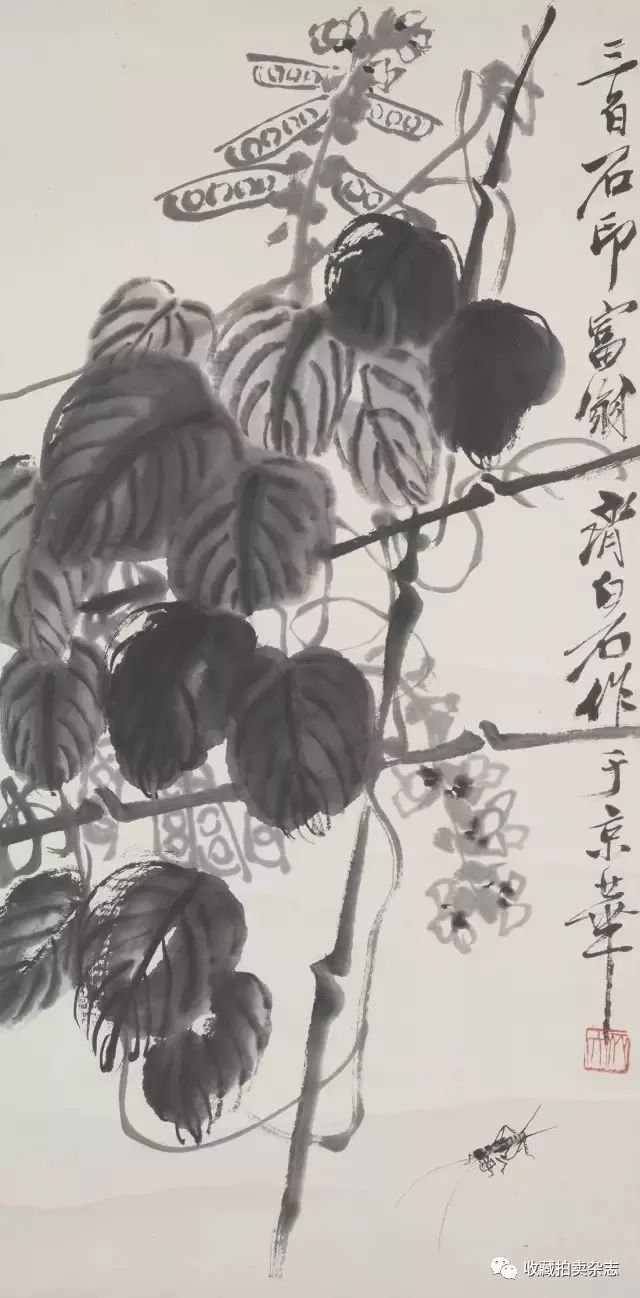 三百石印富翁齊白石作于京華
收藏拍卖杂志